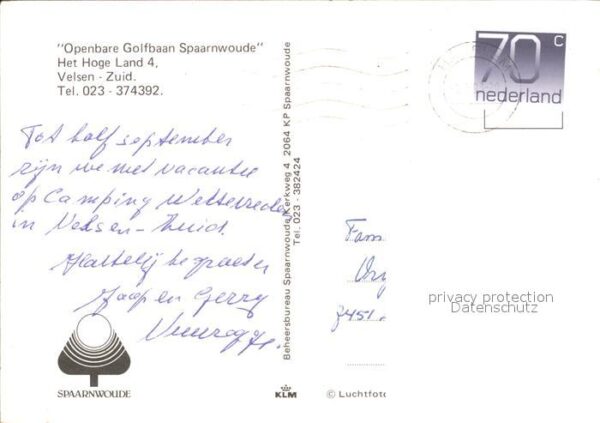 "Openbare Golfbaan Spaarnwoude"
Het Hoge Land 4,
Velsen - Zuid.
Tel. 023 - 374392.
Tot half september
zijn we met vacantie
op Camping Weltevreden
in Velsen-Zuid.
Hartelijk begroeten
Jaap en Gerry
SPAARNWOUDE
Beheersbureau Spaarnwoude/Kerkweg 4, 2064 KP Spaarnwoude
Tel. 023 - 382424
KLM
© Luchtfoto
70 c
nederland
Fam
7451
privacy protection
Datenschutz